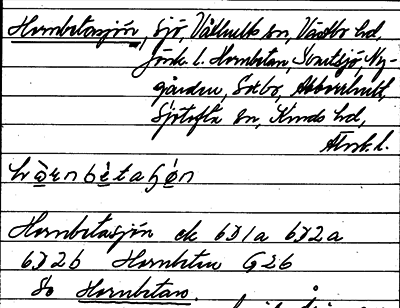 Hornbetasjön, Sjö, Våthult sn, Västbo hd,
Jönk. l. Hornbetan, Svartsjö Ny-
gården, Sotbo, Abborrhult,
Sjötofta sn, Kinds hd,
Älvsb. l.
Hornbetasjön ek 6D1a 6D2a
6D2b Hornbeten G26
So Hornbetan.